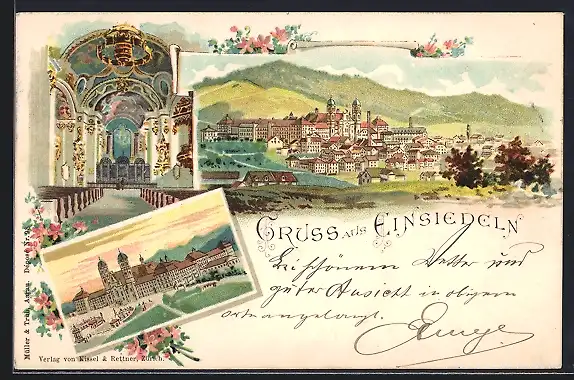 GRUSS AUS EINSIEDELN
Bei schönem Wetter und
guter Aussicht in obigem
Orte angelangt.
Müller & Trüb, Aarau. Déposé Nr.
Verlag von Kissel & Rettner, Zürich.